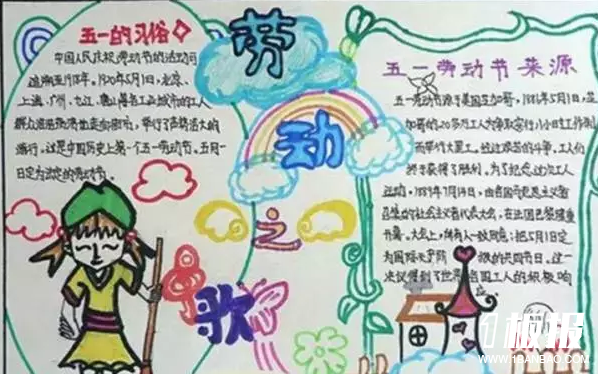 五一的习俗
中国人民庆祝劳动节的活动可
追溯至1918年。1920年5月1日,北京、
上海、广州、九江、唐山等各工业城市的工人
群众浩浩荡荡地走向街市、举行了声势浩大的
游行、这是中国历史上第一个五一劳动节。五月一
日定为法定的劳动节。
劳
动
之
歌
五一劳动节来源
五一劳动节源于美国芝加哥,1886年5月1日,芝
加哥的20多万工人为争取实行八小时工作制
而举行大罢工。经过艰苦的斗争,工人们
终于获得了胜利。为了纪念这次工人
运动,1889年7月14日,由各国马克思主义者
召集的社会主义者代表大会,在法国巴黎隆重
开幕。大会上,与会人一致同意:把5月1日定
为国际无产阶级的共同节日。这一
决议得到了世界各国工人的积极响
应
1板报
WWW.1BANBAO.COM